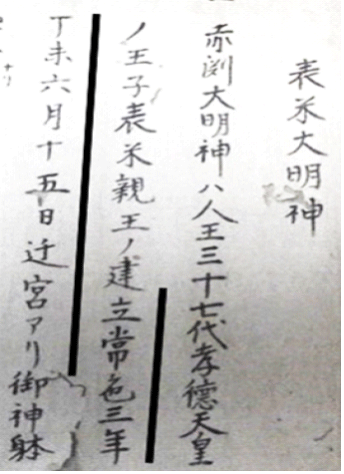 表米大明神
赤渕大明神ハ人王三十七代孝徳天皇
ノ王子表米親王ノ建立常色三年
丁未六月十五日迁宮アリ御神躰